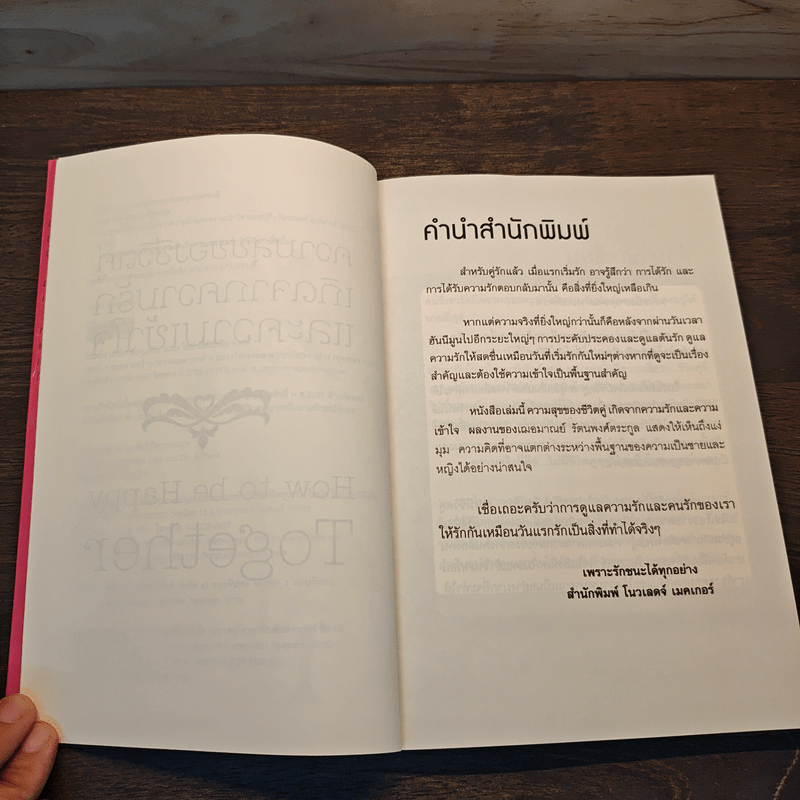 ความสุขของชีวิตคู่
เกิดจากความรัก
และความเข้าใจ
How to be Happy
Together
คำนำสำนักพิมพ์
สำหรับคู่รักแล้ว เมื่อแรกเริ่มรัก อาจรู้สึกว่า การได้รัก และ
การได้รับความรักตอบกลับมานั้น คือสิ่งที่ยิ่งใหญ่เหลือเกิน
หากแต่ความจริงที่ยิ่งใหญ่กว่านั้นก็คือหลังจากผ่านวันเวลา
ฮันนีมูนไปอีกระยะใหญ่ๆ การประคับประคองและดูแลต้นรัก ดูแล
ความรักให้สดชื่นเหมือนวันที่เริ่มรักกันใหม่ๆต่างหากที่ดูจะเป็นเรื่อง
สำคัญและต้องใช้ความเข้าใจเป็นพื้นฐานสำคัญ
หนังสือเล่มนี้ ความสุขของชีวิตคู่ เกิดจากความรักและความ
เข้าใจ ผลงานของเฌอมาณย์ รัตนพงศ์ตระกูล แสดงให้เห็นถึงแง่
มุม ความคิดที่อาจแตกต่างระหว่างพื้นฐานของความเป็นชายและ
หญิงได้อย่างน่าสนใจ
เชื่อเถอะครับว่าการดูแลความรักและคนรักของเรา
ให้รักกันเหมือนวันแรกรักเป็นสิ่งที่ทำได้จริงๆ
เพราะรักชนะได้ทุกอย่าง
สำนักพิมพ์ โนวเลดจ์ เมคเกอร์